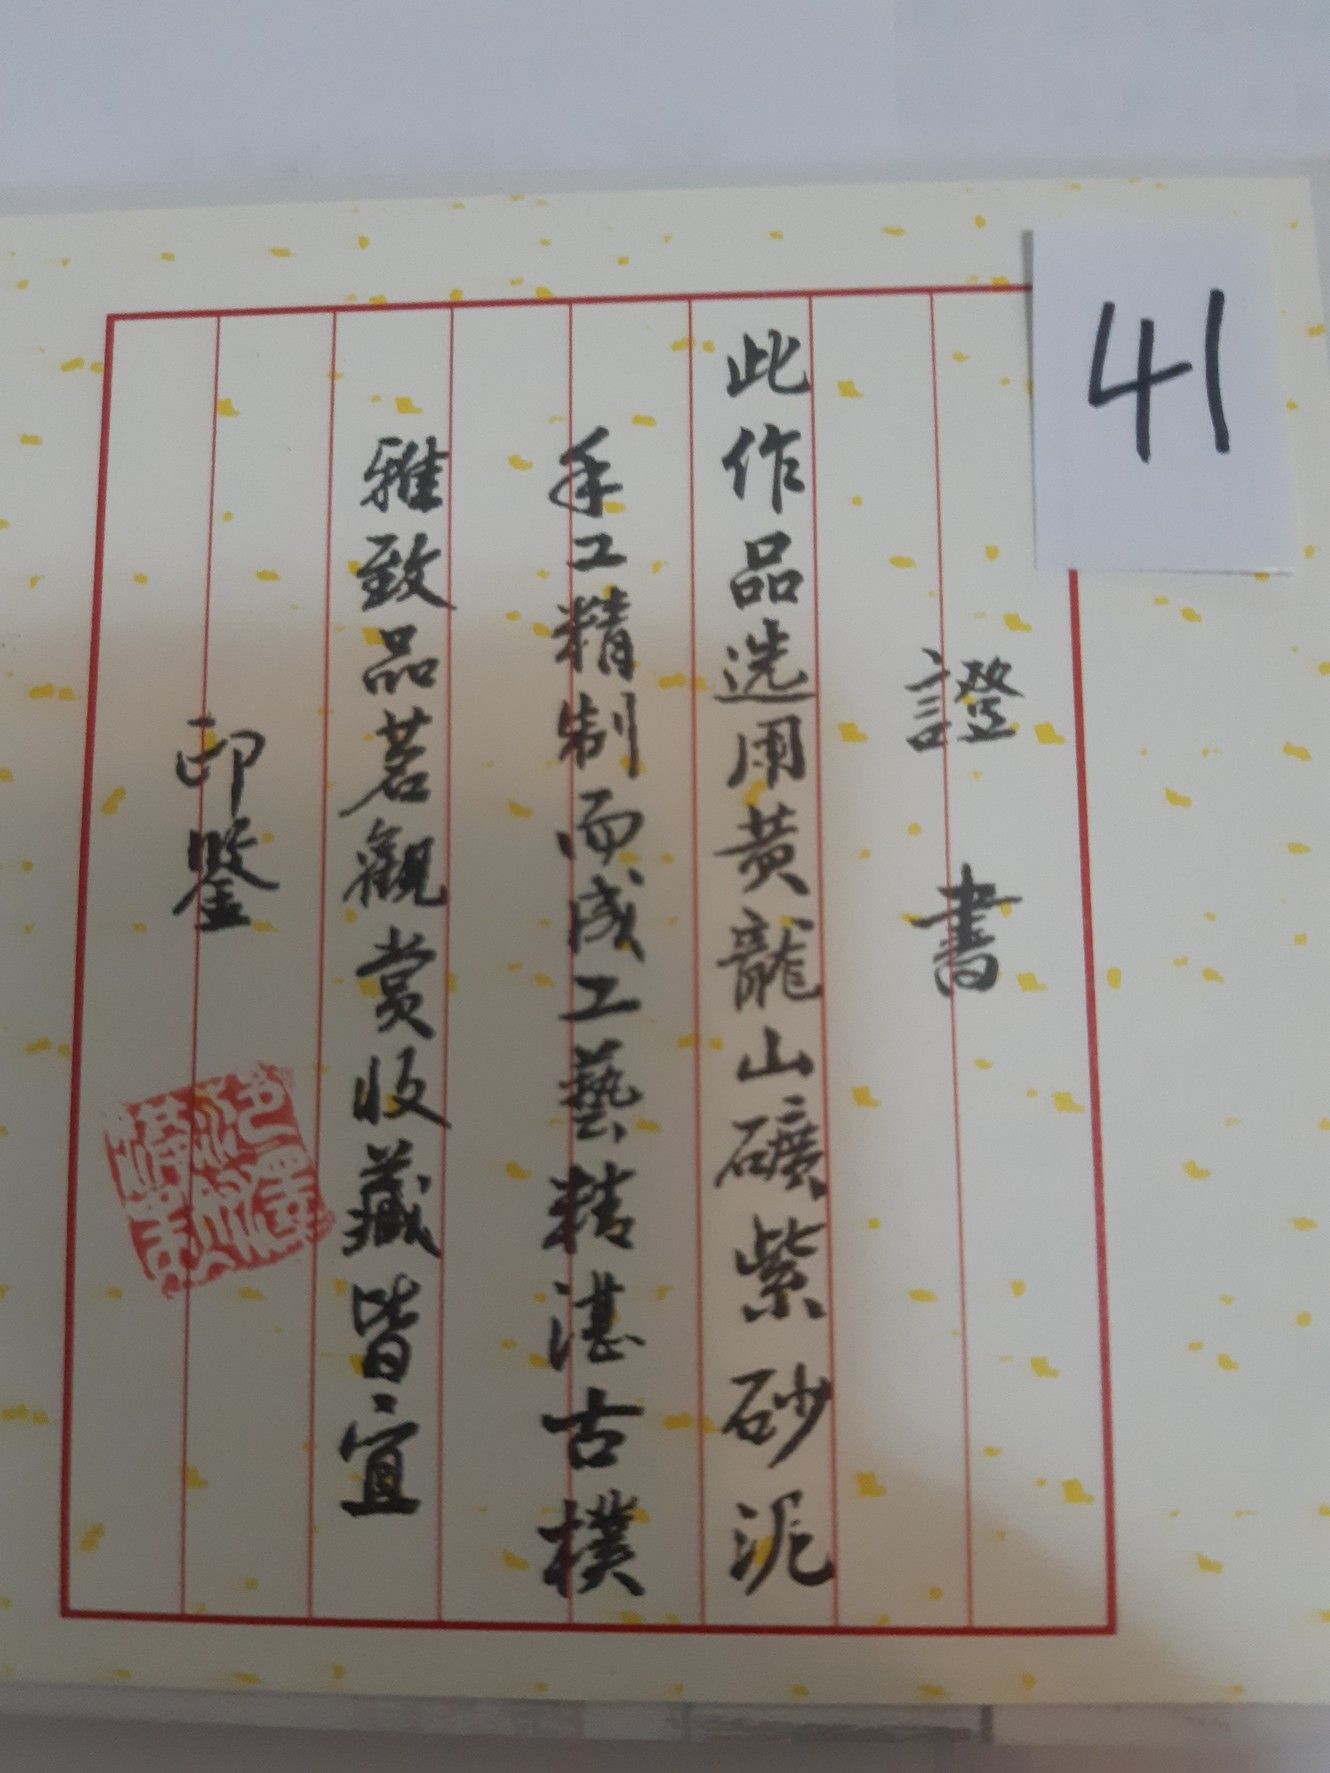 41
證書
此作品选用黄龍山礦紫砂泥
手工精制而成工藝精湛古樸
雅致品茗觀赏收藏皆宜
印鉴